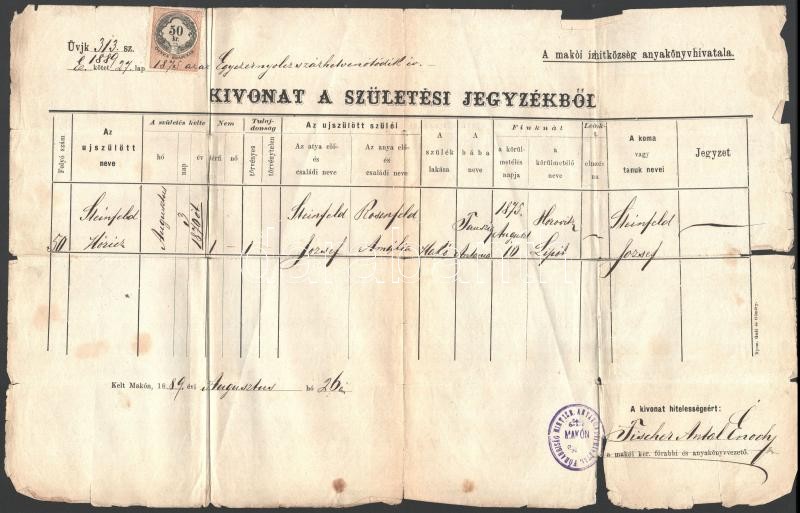 Üvjk 313 sz.
E. 1889 kötet 27 lap
50
kr.
1875 azaz Egyezernyolczszázhetvenötödik év. –
A makói izr. hitközség anyakönyvhivatala.
KIVONAT A SZÜLETÉSI JEGYZÉKBŐL
Folyó szám
Az ujszülött neve
A születés kelte
hó nap év
Nem
férfi nő
Tulajdonság
törvényes törvénytelen
Az ujszülött szülei
Az atya elő- és családi neve
Az anya elő- és családi neve
A szülék lakása
A bába neve
Fiuknál
a körülmetélés napja
a körülmetélő neve
A koma vagy tanuk nevei
Jegyzet
50 Steinfeld Móricz Augustus 3 1875 1 – 1 Steinfeld József Rosenfeld Amália Makó 1875 August 10 Horovitz Lipót – Steinfeld József
Kelt Makón, 1889 évi Augusztus hó 26án
MAKÓN
A kivonat hiteleségeért:
Fischer Antal Enoch
a makói ker. főrabbi és anyakönyvvezető.